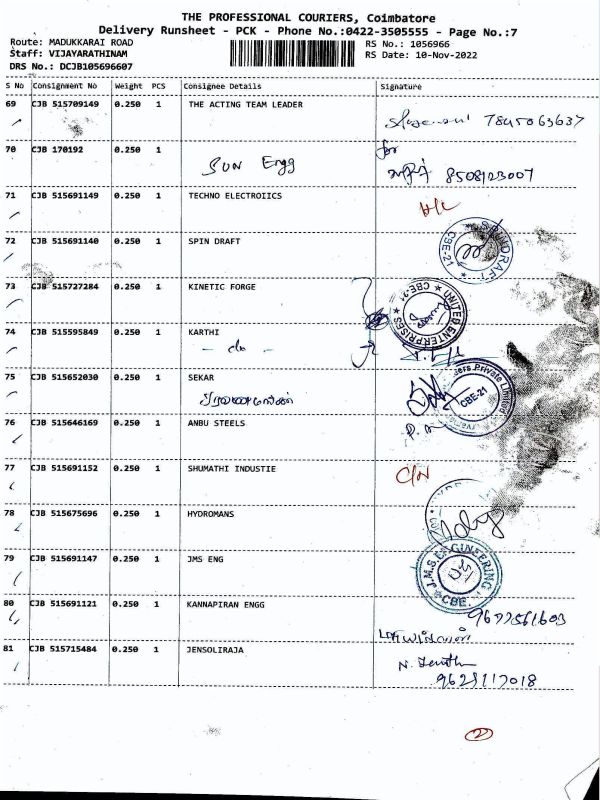 THE PROFESSIONAL COURIERS, Coimbatore
Delivery Runsheet - PCK - Phone No.:0422-3505555 - Page No.:7
Route: MADUKKARAI ROAD
Staff: VIJAYARATHINAM
DRS No.: DCJB105696607
RS No.: 1056966
RS Date: 10-Nov-2022
S No Consignment No Weight PCS Consignee Details Signature
69 CJB 515709149 0.250 1 THE ACTING TEAM LEADER
7845063637
70 CJB 170192 0.250 1 SUN Engg for
8508123007
71 CJB 515691149 0.250 1 TECHNO ELECTROIICS
72 CJB 515691140 0.250 1 SPIN DRAFT
CBE-21
73 CJB 515727284 0.250 1 KINETIC FORGE
UNITED ENTERPRISES ★ CBE-21 ★
74 CJB 515595849 0.250 1 KARTHI
- do -
75 CJB 515652030 0.250 1 SEKAR
Private Limited
CBE-21
76 CJB 515646169 0.250 1 ANBU STEELS
77 CJB 515691152 0.250 1 SHUMATHI INDUSTIE
78 CJB 515675696 0.250 1 HYDROMANS
79 CJB 515691147 0.250 1 JMS ENG
J.M.S ENGINEERING
★ CBE. ★
80 CJB 515691121 0.250 1 KANNAPIRAN ENGG
9677561603
81 CJB 515715484 0.250 1 JENSOLIRAJA
9628117018
2